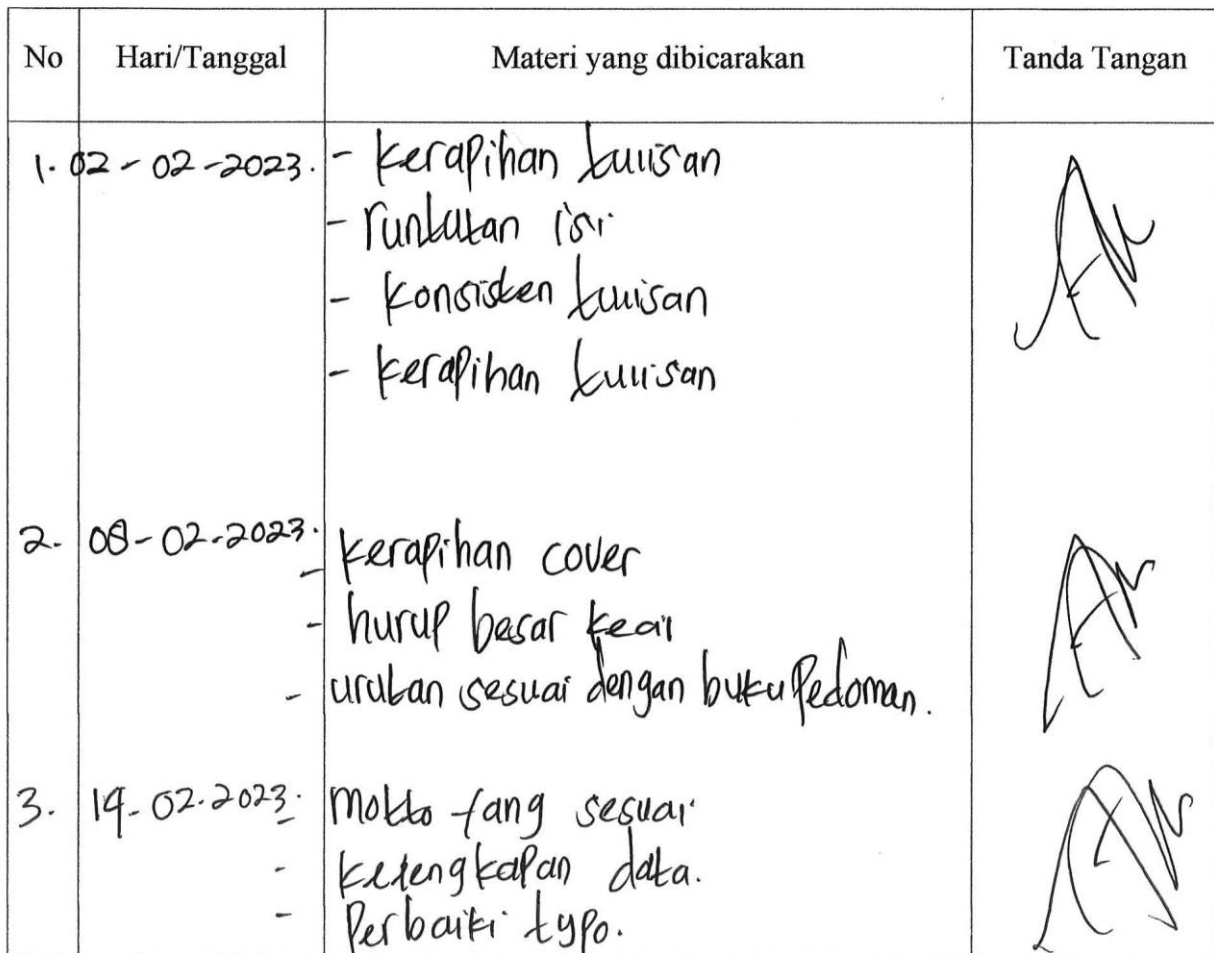 No Hari/Tanggal Materi yang dibicarakan Tanda Tangan
1. 02-02-2023. - kerapihan tulisan
- runtutan isi
- konsisten tulisan
- kerapihan tulisan
2. 08-02-2023. - kerapihan cover
- hurup besar kecil
- urutan sesuai dengan buku Pedoman.
3. 14-02-2023. - motto yang sesuai
- kelengkapan data.
- Perbaiki typo.